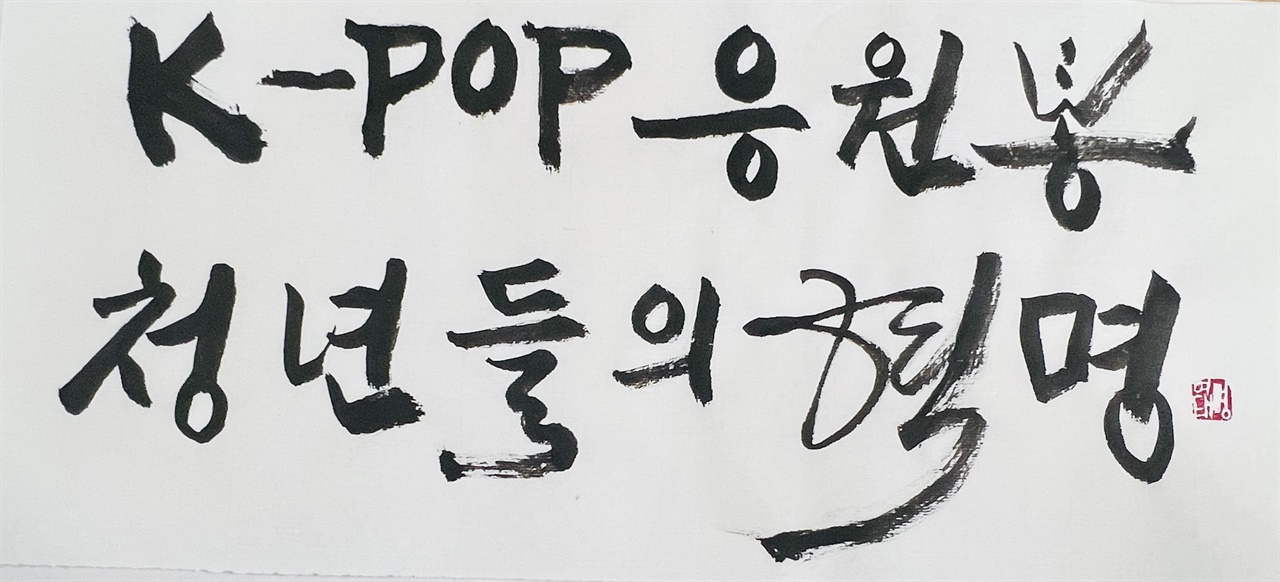 K-POP 응원봉
청년들의 혁명